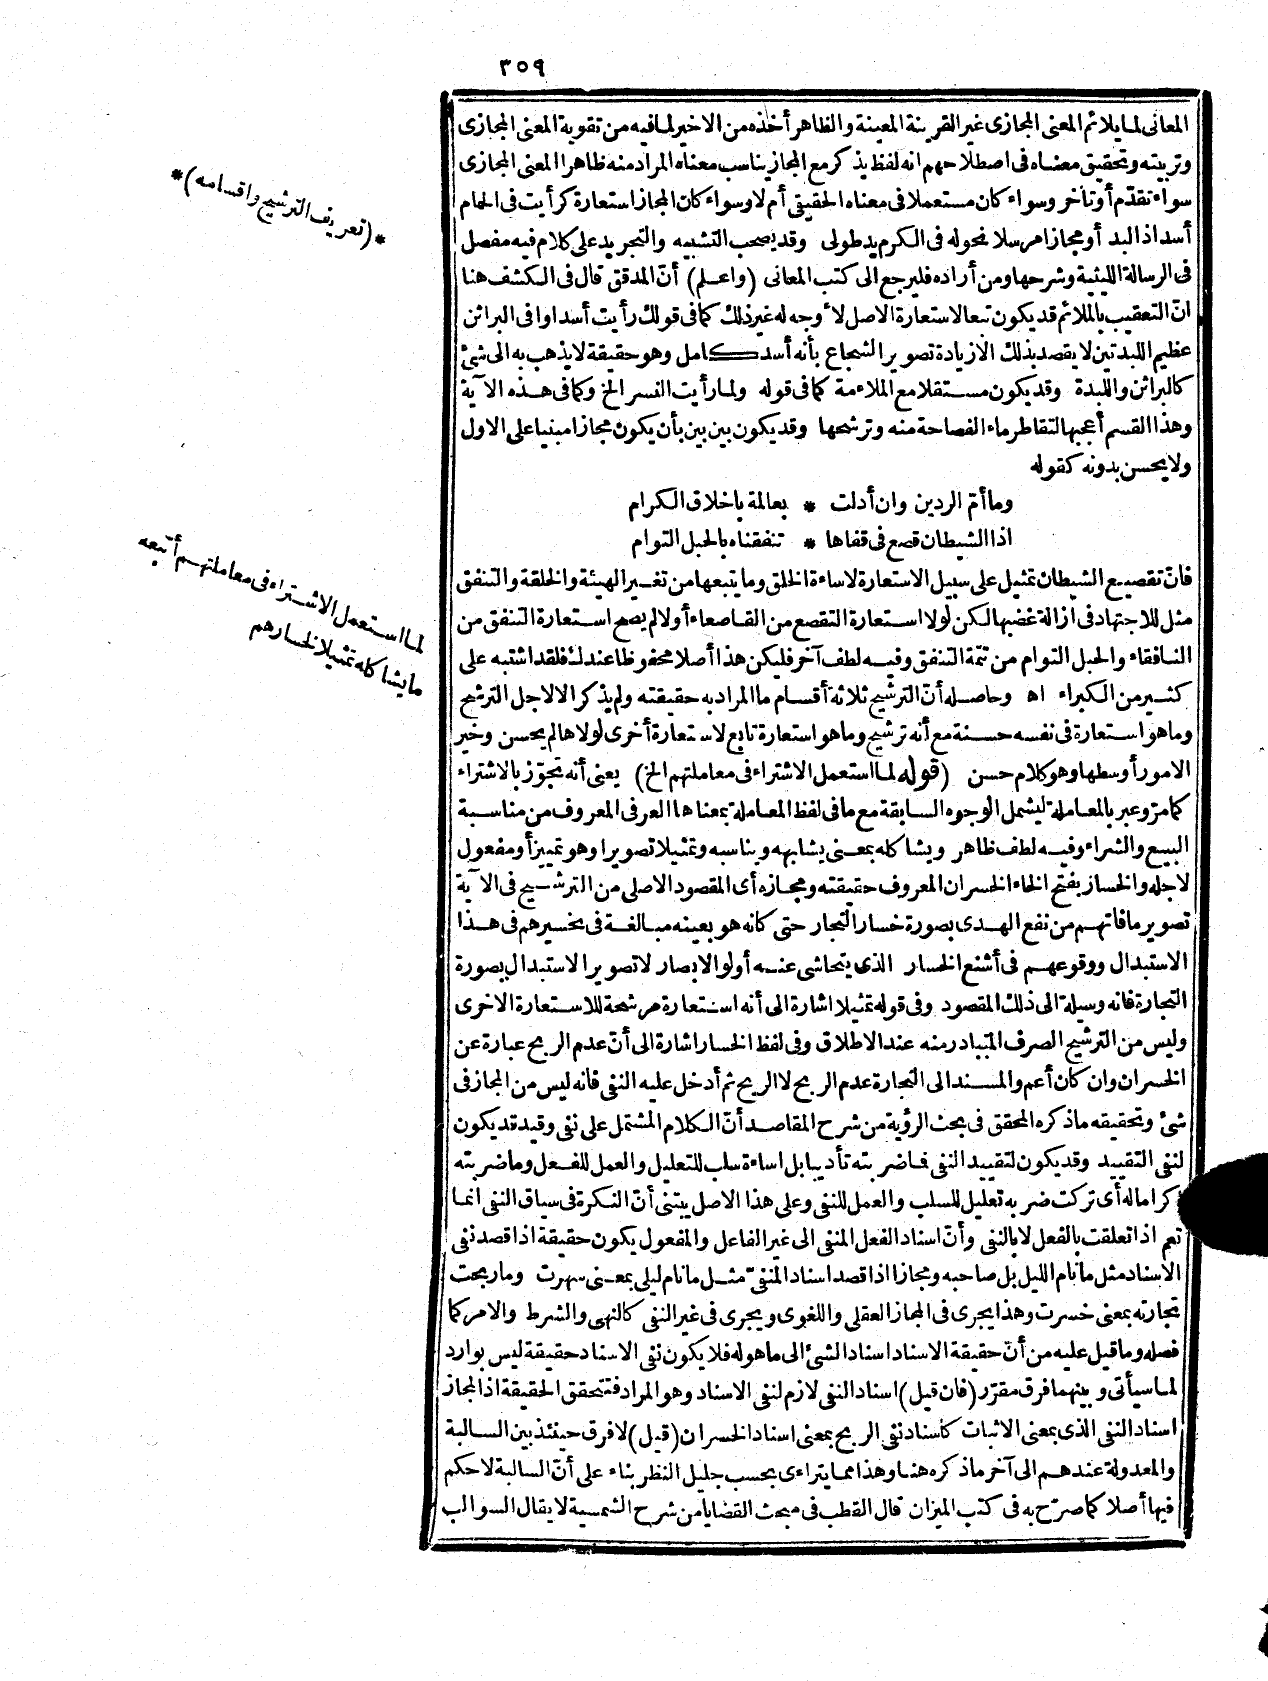 ٣٥٩
المعانى لما يلائم المعنى المجازى غير القرينة المعينة والظاهر أخذه من الاخير لما فيه من تقوية المعنى المجازى
وتربيته وتحقيق معناه فى اصطلاحهم انه لفظ يذكر مع المجاز يناسب معناه المراد منه ظاهرا المعنى المجازى
سواء تقدّم أو تأخر وسواء كان مستعملا فى معناه الحقيقى أم لا وسواء كان المجاز استعارة كرأيت فى الحمام
أسدا ذا لبد أو مجازا مرسلا نحو له فى الكرم يد طولى وقد يصحب التشبيه والتجريد على كلام فيه مفصل
فى الرسالة الليثية وشرحها ومن أراده فليرجع الى كتب المعانى (واعلم) أنّ المدقق قال فى الكشف هنا
انّ التعقيب بالملائم قد يكون تبعا لاستعارة الاصل لا وجه له غير ذلك كما فى قولك رأيت أسدا وافى البراثن
عظيم اللبدتين لا يقصد بذلك الا زيادة تصوير الشجاع بأنه أسد كامل وهو حقيقة لا يذهب به الى شئ
كالبراثن واللبدة وقد يكون مستقلا مع الملاءمة كما فى قوله ولما رأيت النسر الخ وكما فى هذه الآية
وهذا القسم أعجبها لتقاطر ماء الفصاحة منه وترشحها وقد يكون بين بين بأن يكون مجازا مبنيا على الاول
ولا يحسن بدونه كقوله
وما أمّ الردين وان أدلت * بعالمة باخلاق الكرام
اذا الشيطان قصع فى قفاها * تنفقناه بالحبل التوام
فانّ تقصيع الشيطان تمثيل على سبيل الاستعارة لاساءة الخلق وما يتبعها من تغير الهيئة والخلقة والتنفق
مثل للاجتهاد فى ازالة غضبها لكن لولا استعارة التقصع من القاصعاء أولا لم يصح استعارة التنفق من
النافقاء والحبل التوام من تتمّة التنفق وفيه لطف آخر فليكن هذا أصلا محفوظا عندك فلقد اشتبه على
كثير من الكبراء اه وحاصله أنّ الترشيح ثلاثة أقسام ما المراد به حقيقته ولم يذكر الا لاجل الترشح
وما هو استعارة فى نفسه حسنة مع أنه ترشيح وما هو استعارة تابع لاستعارة أخرى لولاها لم يحسن وخير
الامور أوسطها وهو كلام حسن (قوله لما استعمل الاشتراء فى معاملتهم الخ) يعنى أنه تجوّز بالاشتراء
كما مرّ وعبر بالمعاملة ليشمل الوجوه السابقة مع ما فى لفظ المعاملة بمعناها العرفى المعروف من مناسبة
البيع والشراء وفيه لطف ظاهر ويشاكله بمعنى يشابهه ويناسبه وتمثيلا تصويرا وهو تمييز أو مفعول
لاجله والخسار بفتح الخاء الخسران المعروف حقيقته ومجازه أى المقصود الاصلى من الترشيح فى الآية
تصوير ما فاتهم من نفع الهدى بصورة خسار التجار حتى كانه هو بعينه مبالغة فى تخسيرهم فى هذا
الاستبدال ووقوعهم فى أشنع الخسار الذى يتحاشى عنه أولو الابصار لا تصوير الاستبدال بصورة
التجارة فانه وسيلة الى ذلك المقصود وفى قوله تمثيلا اشارة الى أنه استعارة مرشحة للاستعارة الاخرى
وليس من الترشيح الصرف المتبادر منه عند الاطلاق وفى لفظ الخسار اشارة الى أنّ عدم الربح عبارة عن
الخسران وان كان أعم والمسند الى التجارة عدم الربح لا الربح ثم أدخل عليه النفى فانه ليس من المجاز فى
شئ وتحقيقه ما ذكره المحقق فى بحث الرؤية من شرح المقاصد أنّ الكلام المشتمل على نفى وقيد قد يكون
لنفى التقييد وقد يكون لتقييد النفى فما ضربته تأديبا بل اساءة سلب للتعليل والعمل للفعل وما ضربته
كراما له أى تركت ضربه تعليل للسلب والعمل للنفى وعلى هذا الاصل يبتنى أنّ النكرة فى سياق النفى انما
تعم اذا تعلقت بالفعل لا بالنفى وأنّ اسناد الفعل المنفى الى غير الفاعل والمفعول يكون حقيقة اذا قصد نفى
الاسناد مثل ما نام الليل بل صاحبه ومجازا اذا قصد اسناد المنفىّ مثل ما نام ليلى بمعنى سهرت وما ربحت
تجارته بمعنى خسرت وهذا يجرى فى المجاز العقلى واللغوى ويجرى فى غير النفى كالنهى والشرط والامر كما
فصله وما قيل عليه من أنّ حقيقة الاسناد اسناد الشئ الى ما هو له فلا يكون نفى الاسناد حقيقة ليس بوارد
لما سيأتى وبينهما فرق مقرّر (فان قيل) اسناد النفى لازم لنفى الاسناد وهو المراد فتتحقق الحقيقة اذ المجاز
اسناد النفى الذى بمعنى الاثبات كاسناد نفى الربح بمعنى اسناد الخسران (قيل) لا فرق حينئذ بين السالبة
والمعدولة عندهم الى آخر ما ذكره هنا وهذا مما يتراءى بحسب جليل النظر بناء على أنّ السالبة لا حكم
فيها أصلا كما صرّح به فى كتب الميزان قال القطب فى مبحث القضايا من شرح الشمسية لا يقال السوالب
*(تعريف الترشيح واقسامه)*
لما استعمل الاشتراء فى معاملتهم أتبعه
ما يشاكله تمثيلا لخسارهم